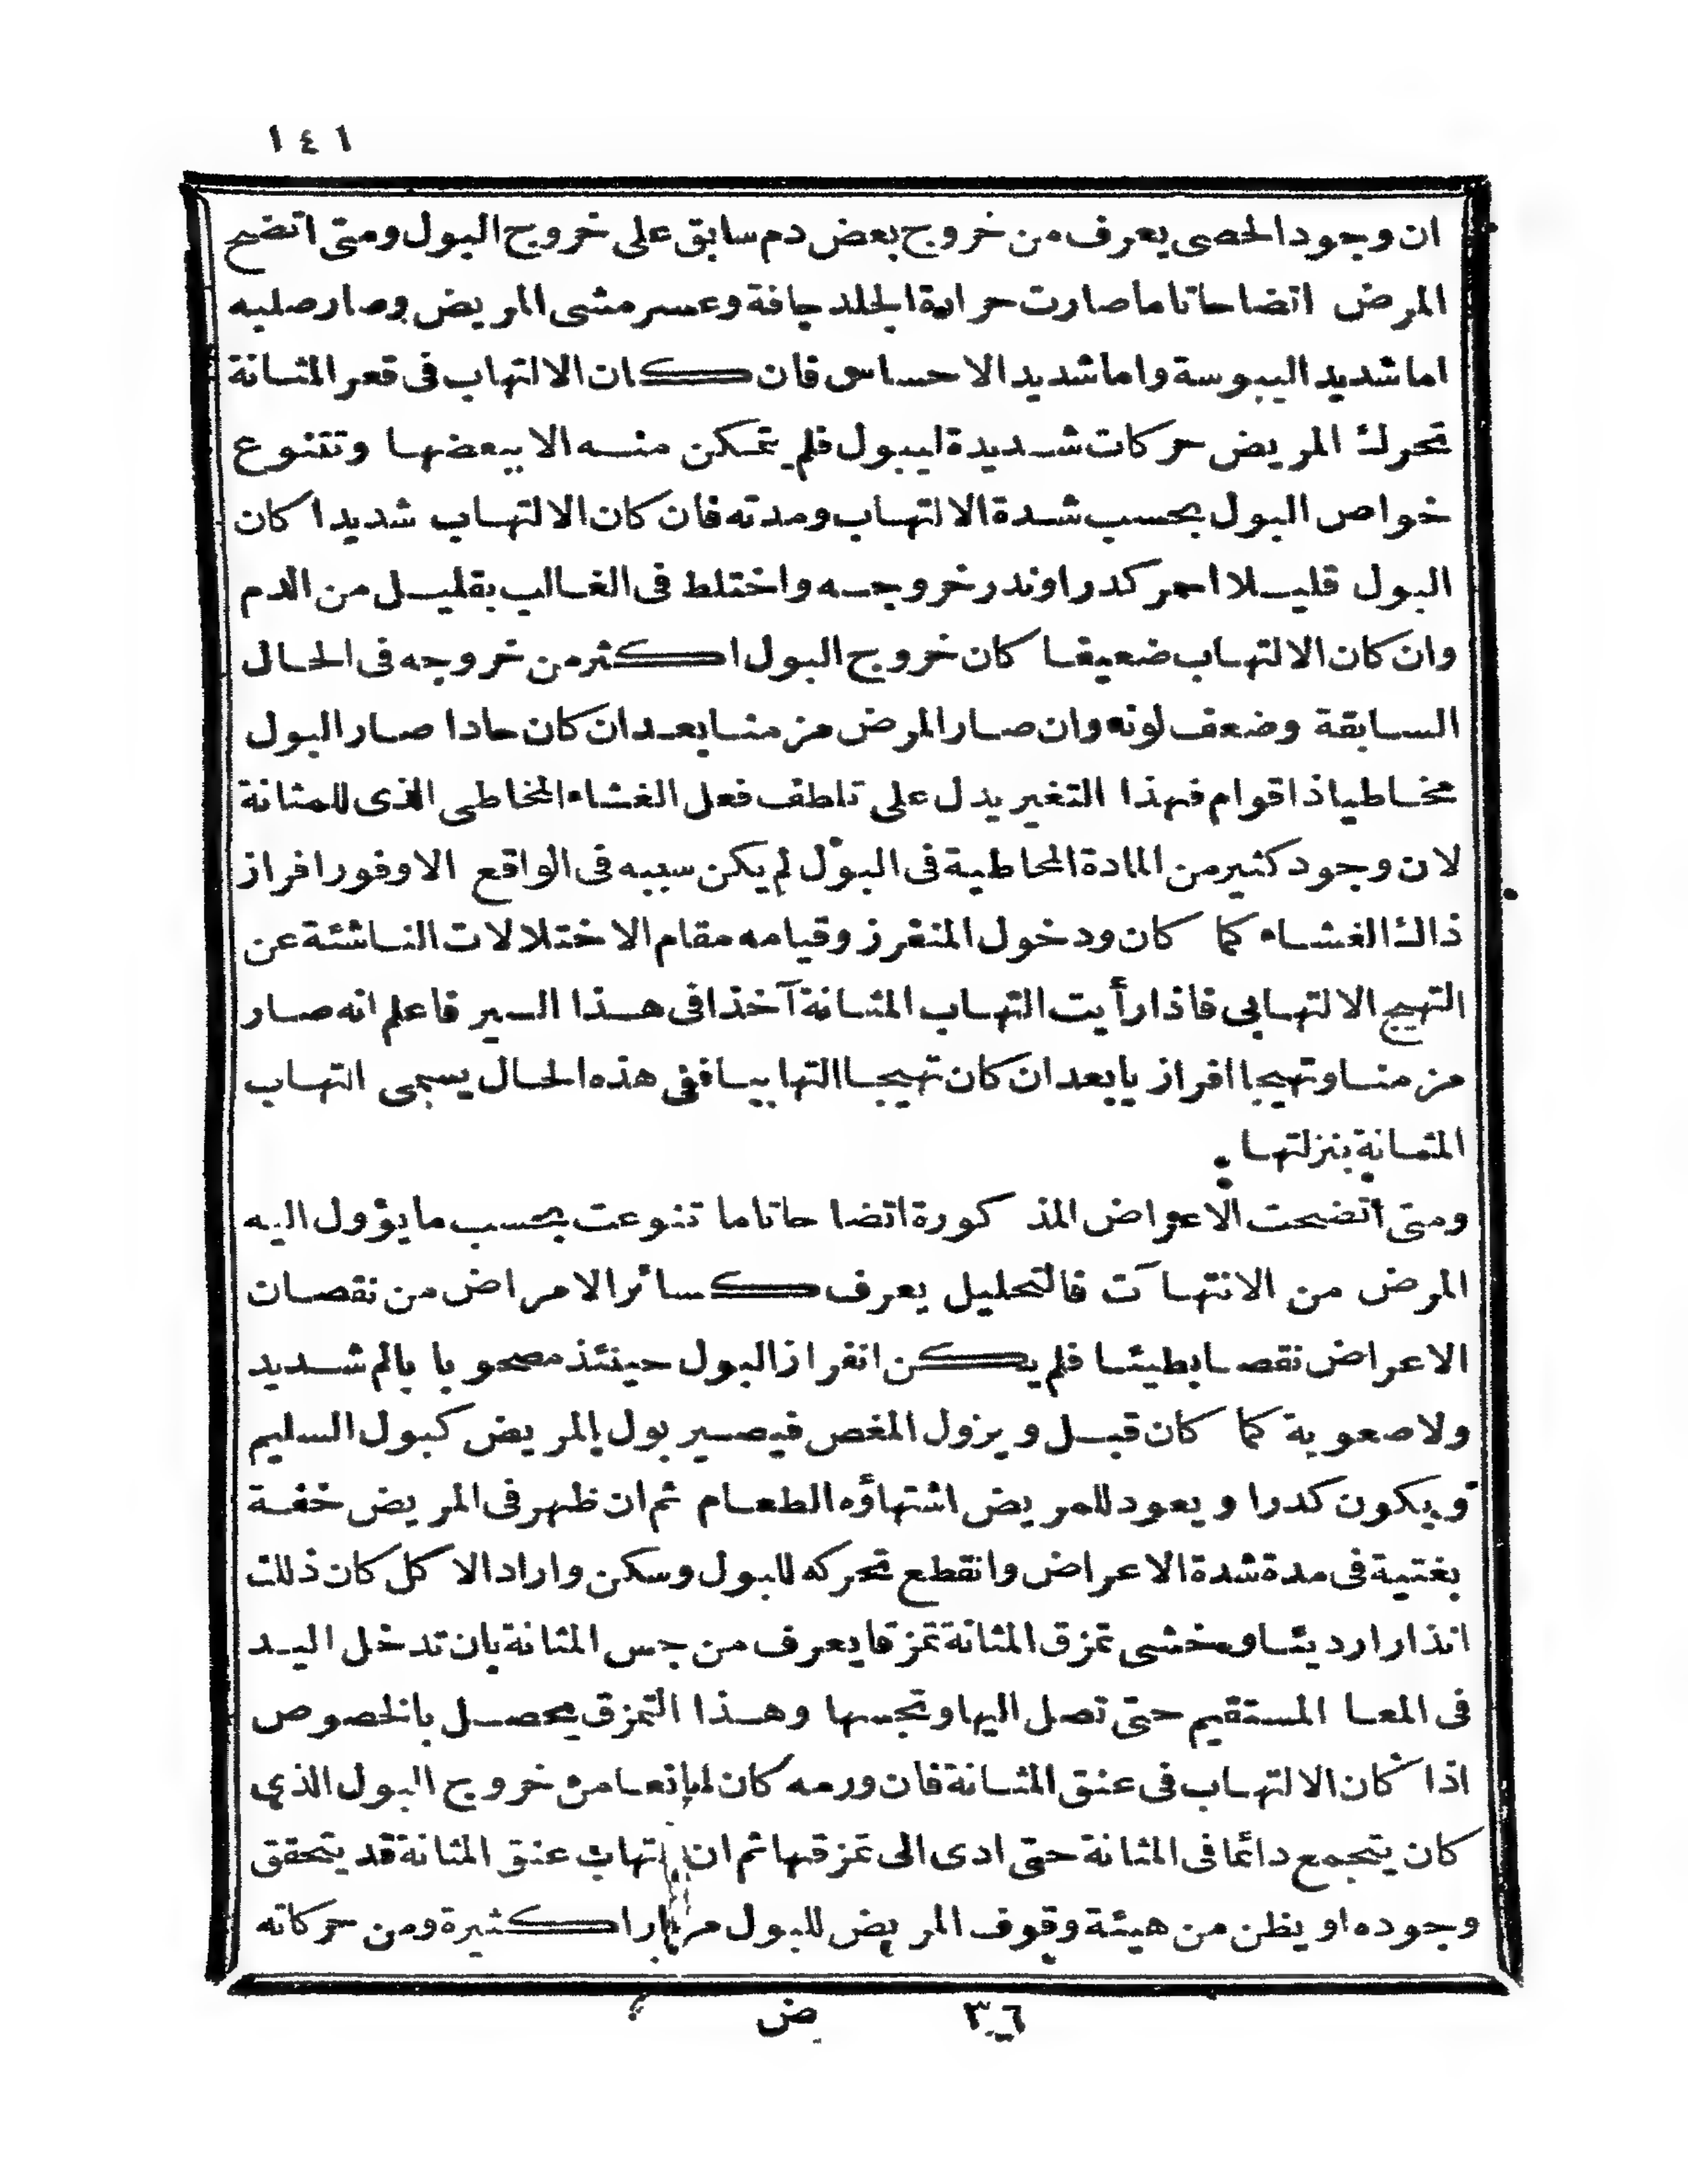 ١٤١
ان وجود الحصى يعرف من خروج بعض دم سابق على خروج البول ومتى اتضح
المرض اتضاحا تاما صارت حرارة الجلد جافة وعسر مشى المريض وصار صلبه
اما شديد اليبوسة واما شديد الاحساس فان كان الالتهاب فى قعر المثانة
تحرك المريض حركات شديدة ليبول فلم يتمكن منه الا ببعضها وتتنوع
خواص البول بحسب شدة الالتهاب ومدته فان كان الالتهاب شديدا كان
البول قليلا احمر كدرا وندر خروجه واختلط فى الغالب بقليل من الدم
وان كان الالتهاب ضعيفا كان خروج البول اكثر من خروجه فى الحال
السابقة وضعف لونه وان صار المرض مزمنا بعد ان كان حادا صار البول
مخاطيا ذا قوام فهذا التغير يدل على تلطف فعل الغشاء المخاطى الذى للمثانة
لان وجود كثير من المادة المخاطية فى البول لم يكن سببه فى الواقع الا وفور افراز
ذلك الغشاء كما كان ودخول المنفرز وقيامه مقام الاختلالات الناشئة عن
التهيج الالتهابى فاذا رأيت التهاب المثانة آخذا فى هذا السير فاعلم انه صار
مزمنا وتهيجا افرازيا بعد ان كان تهيجا التهابيا ففى هذه الحال يسمى التهاب
المثانة بنزلتها
ومتى اتضحت الاعراض المذكورة اتضاحا تاما تنوعت بحسب ما يؤول اليه
المرض من الانتهاآت فالتحليل يعرف كسائر الامراض من نقصان
الاعراض نقصا بطيئا فلم يكن انفراز البول حينئذ مصحوبا بالم شديد
ولا صعوبة كما كان قبل ويزول المغص فيصير بول المريض كبول السليم
ويكون كدرا ويعود للمريض اشتهاؤه الطعام ثم ان ظهر فى المريض خفة
بغتية فى مدة شدة الاعراض وانقطع تحركه للبول وسكن واراد الاكل كان ذلك
انذارا رديئا ويخشى تمزق المثانة تمزقا يعرف من جس المثانة بان تدخل اليد
فى المعا المستقيم حتى تصل اليها وتجسها وهذا التمزق يحصل بالخصوص
اذا كان الالتهاب فى عنق المثانة فان ورمه كان مانعا من خروج البول الذى
كان يتجمع دائما فى المثانة حتى ادى الى تمزقها ثم ان التهاب عنق المثانة قد يتحقق
وجوده او يظن من هيئة وقوف المريض للبول مرارا كثيرة ومن حركاته
٣٦ ض